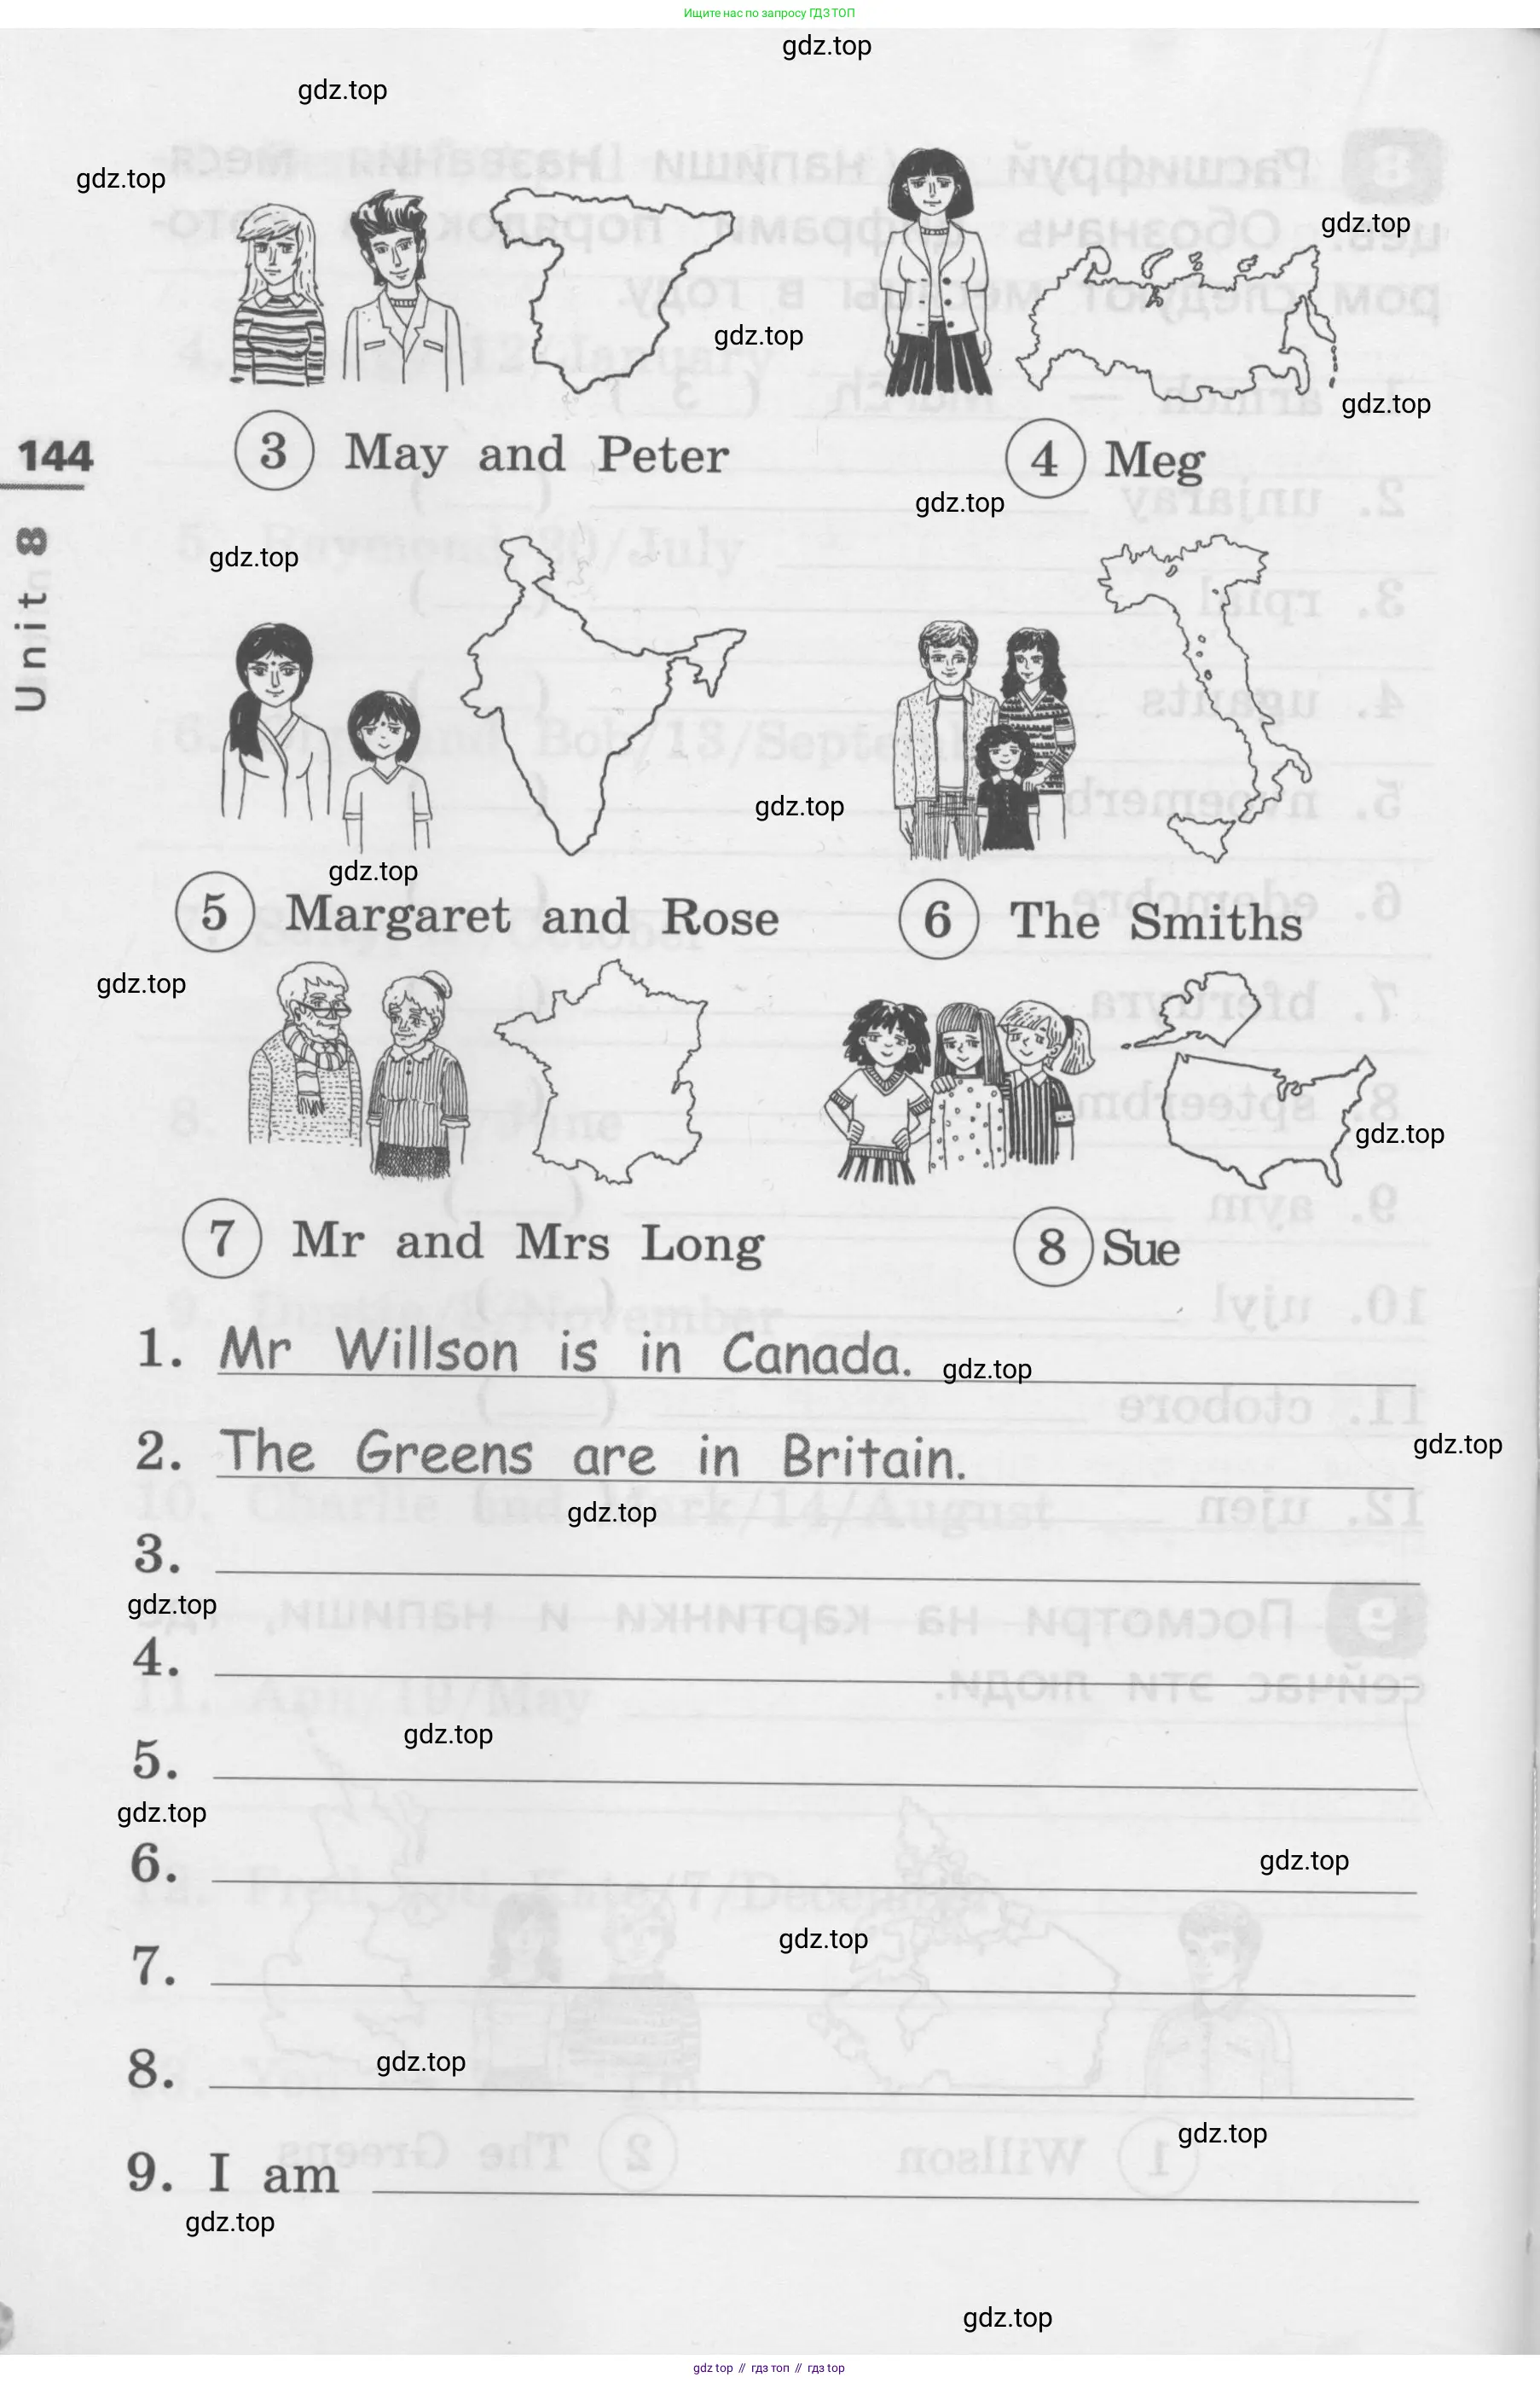 Ищите нас по запросу ГДЗ ТОП
gdz.top
gdz.top
gdz.top
gdz.top
gdz.top
gdz.top
144
3 May and Peter
4 Meg
gdz.top
Unit 8
gdz.top
gdz.top
gdz.top
5 Margaret and Rose
6 The Smiths
gdz.top
gdz.top
7 Mr and Mrs Long
8 Sue
1. Mr Willson is in Canada.
gdz.top
2. The Greens are in Britain.
gdz.top
gdz.top
3.
gdz.top
4.
gdz.top
5.
gdz.top
6.
gdz.top
gdz.top
7.
8.
gdz.top
gdz.top
9. I am
gdz.top
gdz.top
gdz top // гдз топ // гдз top